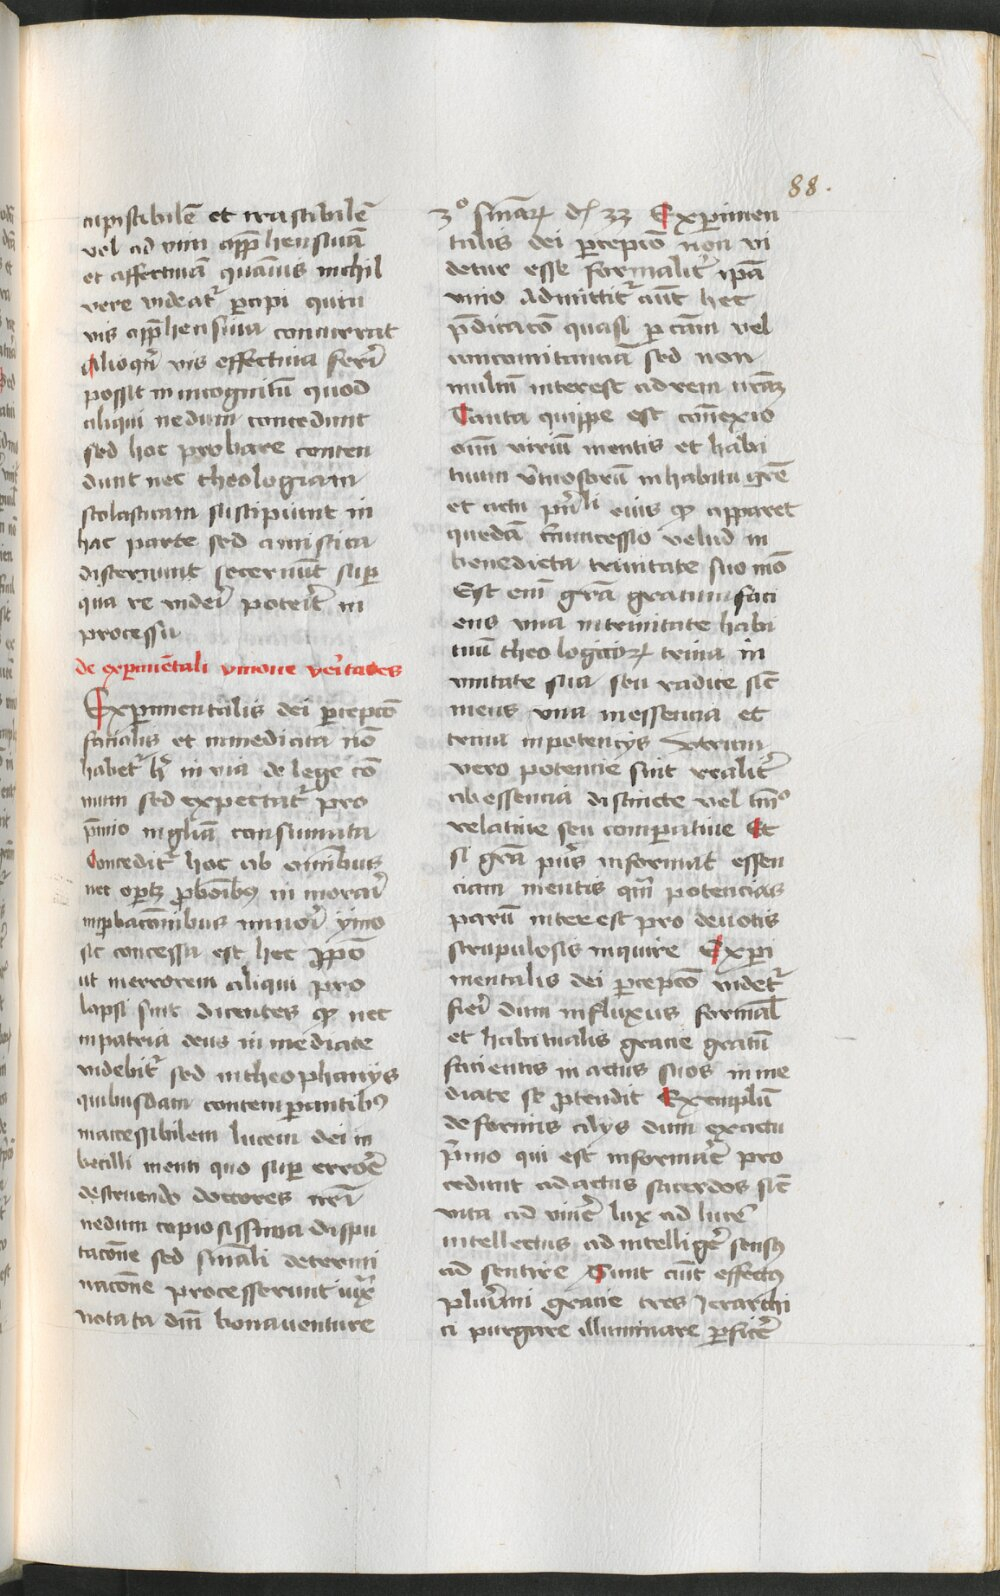 88.
cupiscibilē et irascibilē
vel ad vim apprehensiuā
et affectiuā quāuis nichil
vere videat᷑ p̄cipi quin
vis apprehensiua concurrat
Alioqn̄ vis effectiua ferri
possit in incognitū quod
aliqui nedum concedunt
sed hoc probare conten
dunt nec theologiam
scolasticam suscipiunt in
hac parte sed a mistica
discernunt secernūt sup
qua re videri poterit in
processu
de experimētali vnione veritates
Experimentalis dei p̄cepcō
facialis et inmediata nō
habet᷑ hic in via de lege cō
muni sed expectat᷑ pro
p̄mio in gliā consumata
Concedit᷑ hoc ab omibus
nec oportꝫ probōibus in
inprobaconibus ymo
sic concessa est hec ꝓpō
ut in errorem aliqui pro
lapsi sint dicentes ꝙ nec
in patria deus inmediate
videbit᷑ sed in theophanijs
quibusdam contemperantibꝰ
inaccessibilem lucem dei in
becilli menti quo super errorē
destruendo doctores nr̄i
nedum copiosissima dispu
tacōne sed sinodali determi
nacōne processerunt iuxͣ
notata dn̄i bonauenture
3º sniarꝝ di 33 Experimen
talis dei p̄cepcō non vi
detur esse formalit᷑ ipā
vnio Admittit᷑ aūt hec
p̄dicacō quasi p̄ cām vel
concomitanciā sed non
multū interest ad rem nr̄aꝫ
Tanta quippe est cōnexio
oīm viriū mentis et habi
tuum v̄tuosorū in habitu grē
et actu p̄nli eius ꝙ apparet
quedā circumincessio velud in
benedicta trinitate suo mō
Est enī grā gratum faci
ens vna in trinitate habi
tuū theologicorꝝ trina in
vnitate sua seu radice sicͭ
mens vna in essencia et
trina in potencijs Vtrum
vero potencie sint realit᷑
ab essencia distincte vel tmͦ
relatiue seu comparatiue Et
si grā prius informat essen
ciam mentis qm̄ potencias
parū interest pro deuotis
scrupulosis inquire Experi
mentalis dei p̄cepcō videt᷑
fieri dum influxus formal᷑
et habitualis gracie gratū
facientis in actus suos inme
diate se ꝓtendit Exemplū
de formis alijs dum ex actu
p̄mo qui est informare pro
cedunt ad actus secūdos sicͭ
vita ad viuēe lux ad lucēe
intellectus ad intelligēe sensꝰ
ad sentire Sunt aūt effectꝰ
plurimi gracie tres Jerarchi
ci purgare illuminare p̄ficēe